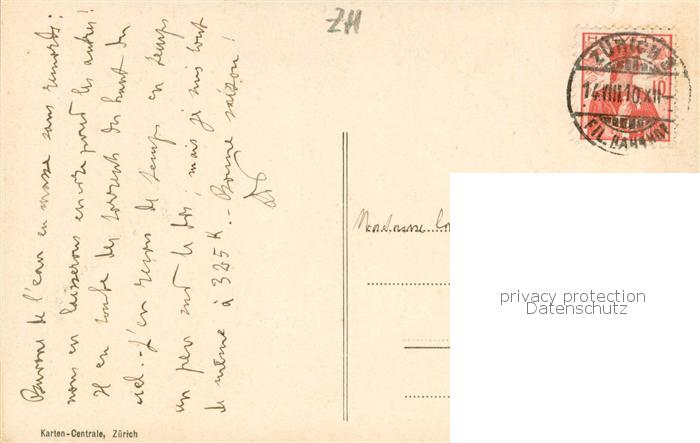 ZH
ZÜRICH 3
14.VIII.10.XII-
FIL. BAHNHOF
Buvons de l'eau en masse sans remords:
nous en laisserons encore pour les autres!
Il en tombe des torrents du haut du
ciel. - J'en reçois de temps en temps
un peu sur le dos; mais je suis tout
de même à 325 K. - Bonne saison!
Madame
privacy protection
Datenschutz
Karten-Centrale, Zürich